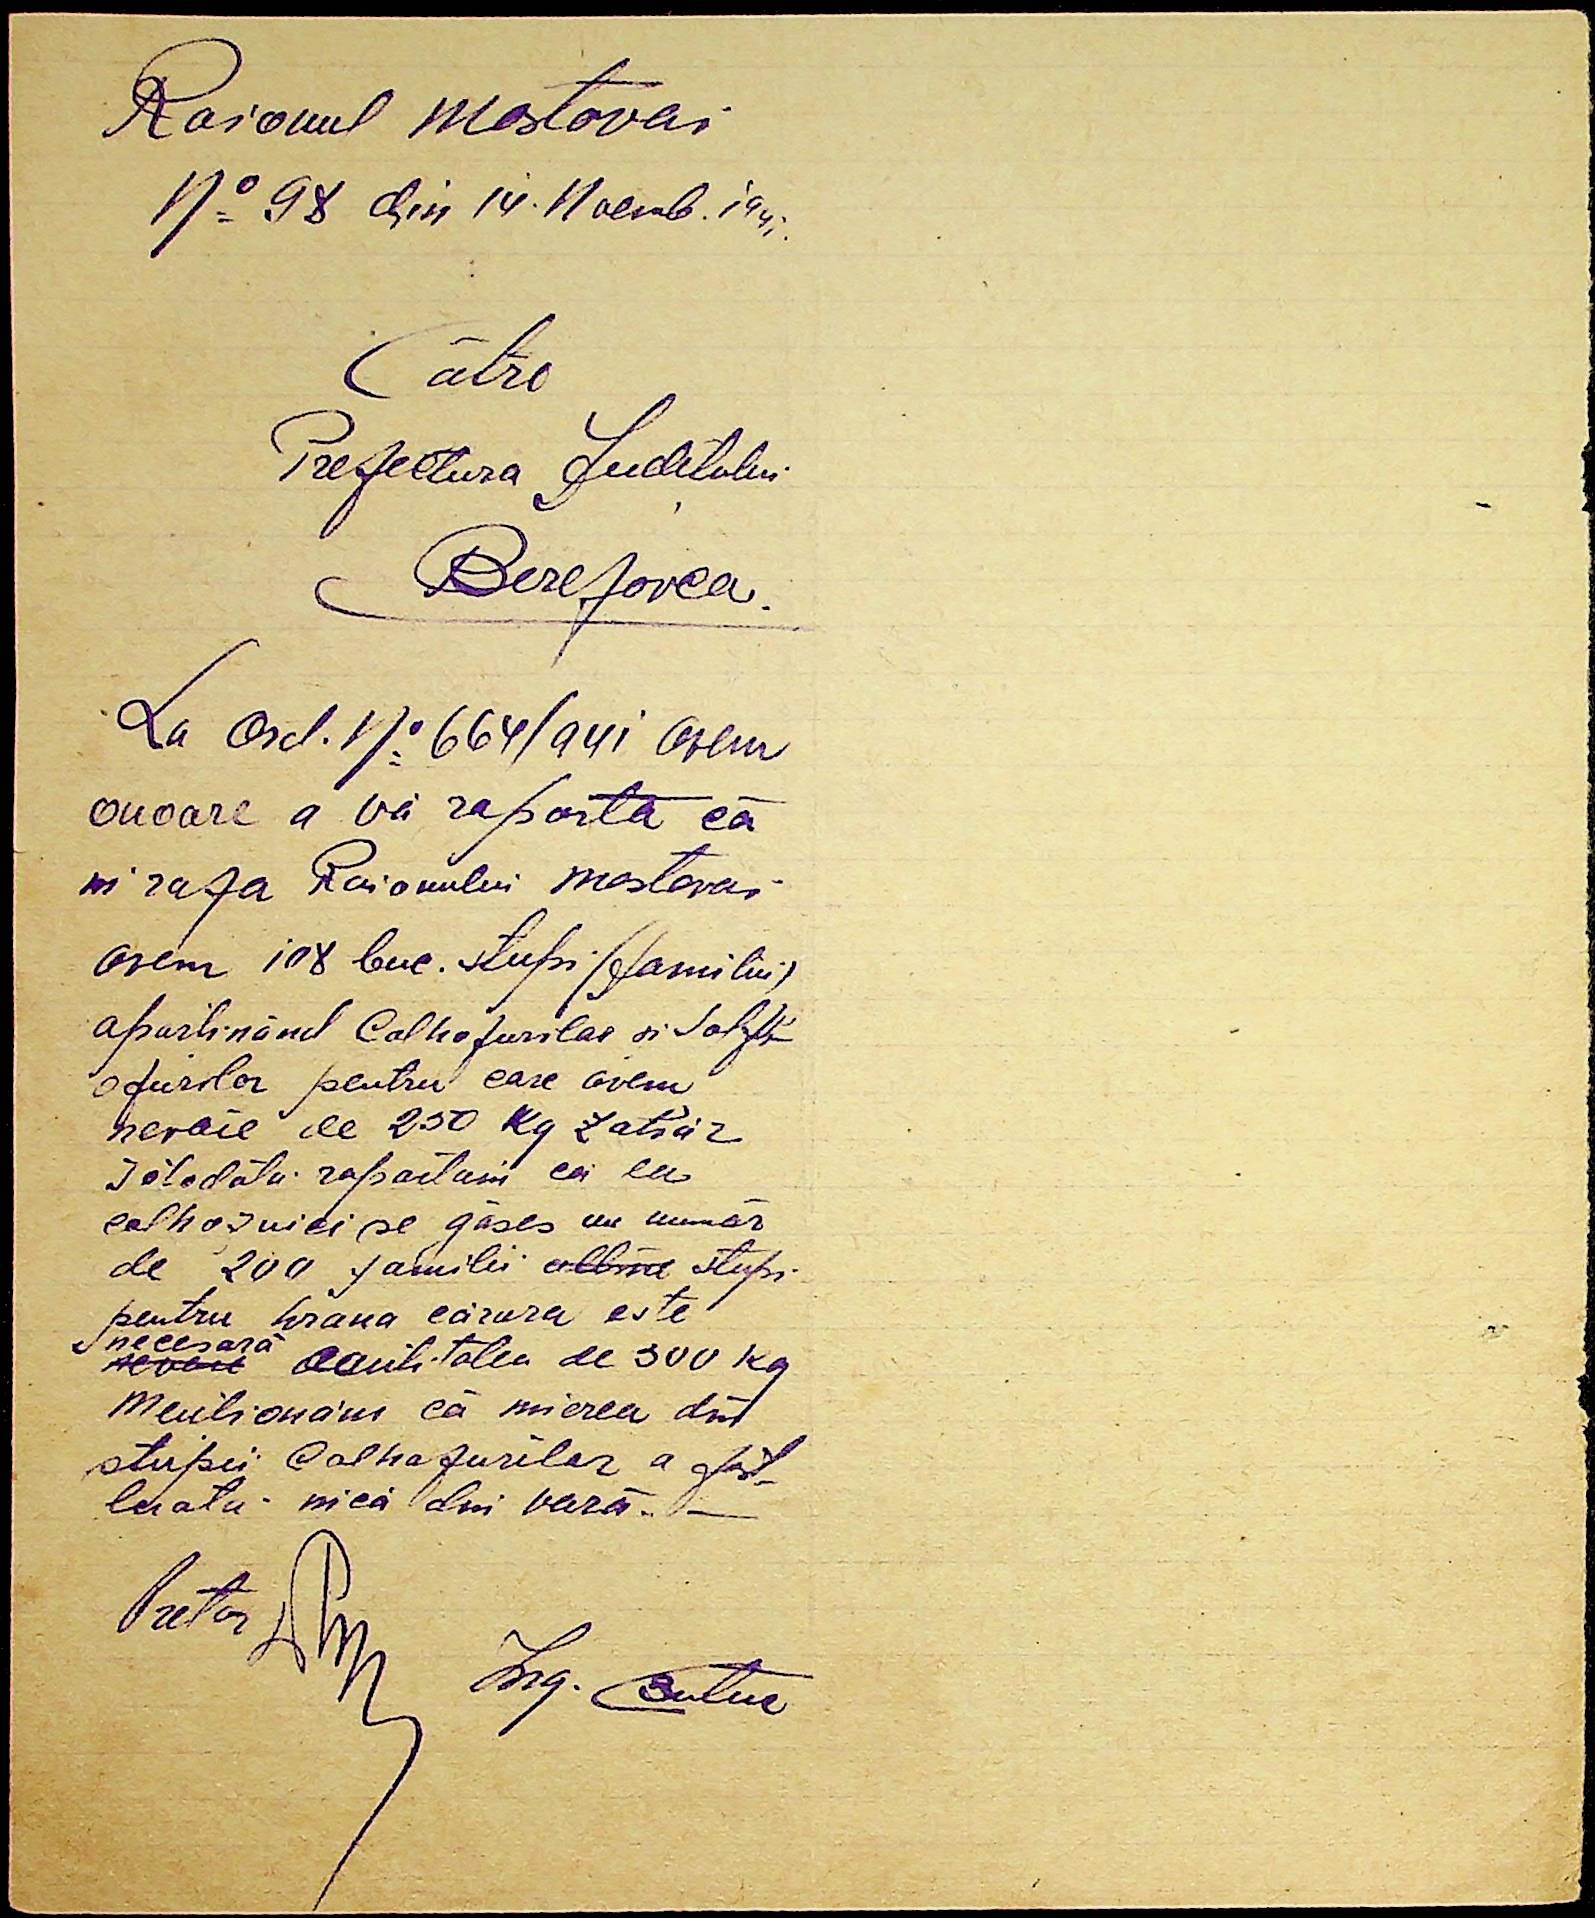 Raionul Mostovai
Nº 98 din 14. Noemb. 1941.
Către
Prefectura Judetului
Berezovca.
La Ord. Nº 664/941 avem
onoare a vă raporta că
in raza Raionului Mostovai
avem 108 buc. stupi (familii)
apartinând Colhozurilor si
ozurilor pentru care avem
nevoie de 250 Kg Zahăr
Totodată raportăm că la
colhoznici se găses un număr
de 200 familii albine stupi
pentru hrana cărora este
necesară
nevoie cantitatea de 300 Kg
Mentionăm că mierea din
stupii Colhozurilor a fost
luată încă din vară. —
Pretor
Ing. Butuc